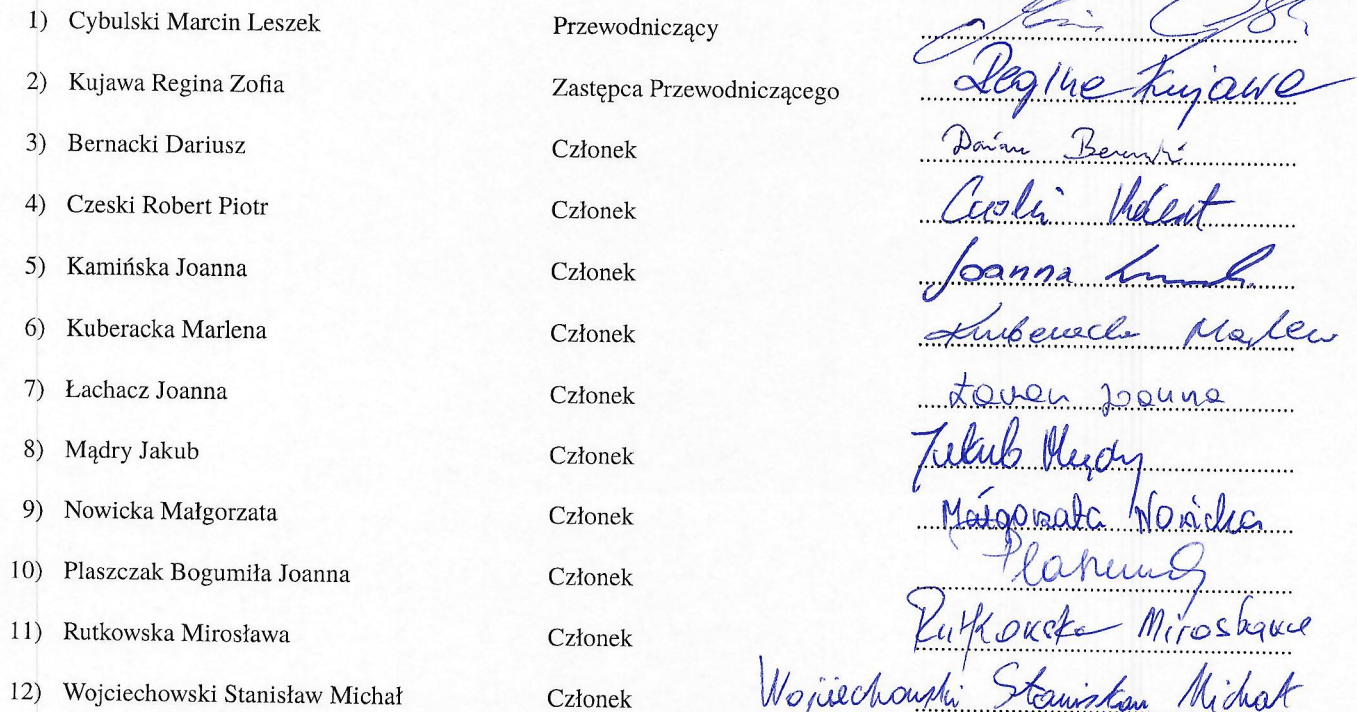 1) Cybulski Marcin Leszek Przewodniczący
2) Kujawa Regina Zofia Zastępca Przewodniczącego Regina Kujawa
3) Bernacki Dariusz Członek
4) Czeski Robert Piotr Członek
5) Kamińska Joanna Członek Joanna
6) Kuberacka Marlena Członek
7) Łachacz Joanna Członek Joanna
8) Mądry Jakub Członek Jakub Mądry
9) Nowicka Małgorzata Członek Małgorzata Nowicka
10) Plaszczak Bogumiła Joanna Członek
11) Rutkowska Mirosława Członek Rutkowska Mirosława
12) Wojciechowski Stanisław Michał Członek Wojciechowski Stanisław Michał